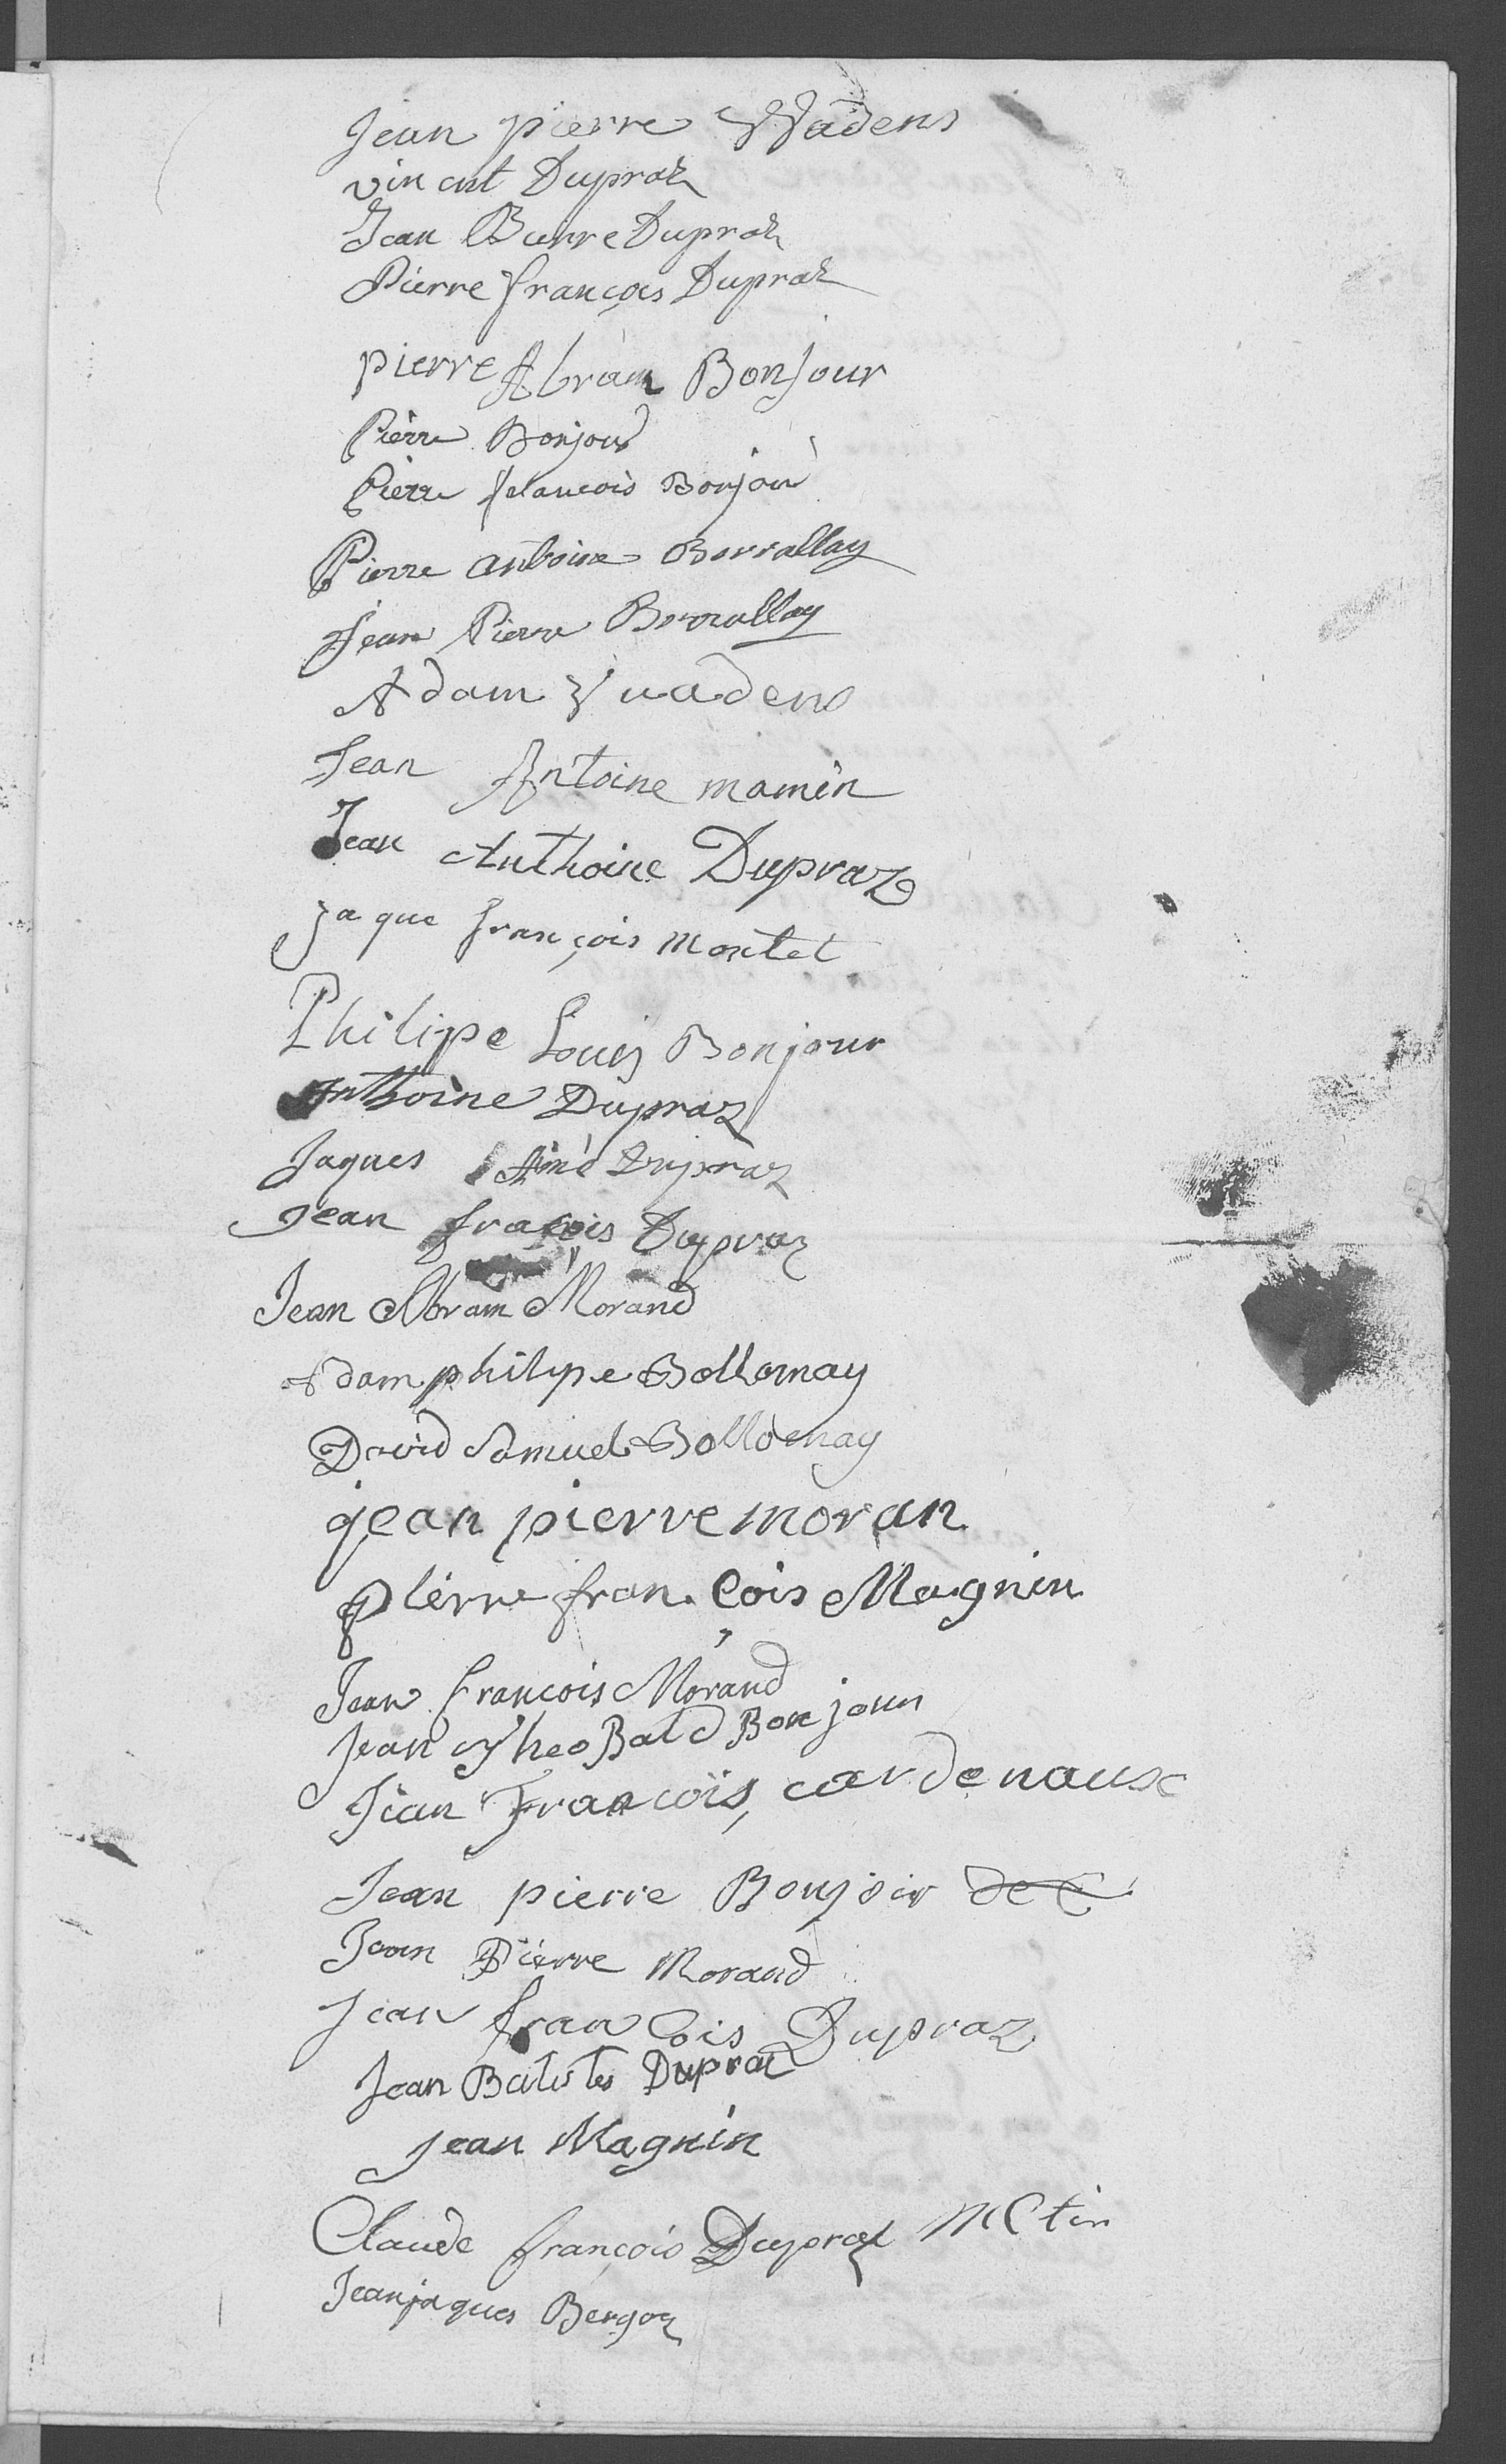 Jean pierre VVadens
vincent Dupraz
Jean Pierre Dupraz
Pierre françois Dupraz
pierre Abram Bonjour
Pierre Bonjour
Pierre francois Bonjour
Pierre antoine Borrallay
Jean Pierre Borrallay
Adam Vuadens
Jean Antoine mamin
Jean Anthoine Dupraz
jaque françois montet
Philipe Louis Bonjour
Anthoine Dupraz
Jaques Aimé Dupraz
Jean fraçois Dupraz
Jean Abram Morand
Adam philipe Bollomay
David Samuel Bollomay
jean pierre moran
pierre fran çois Magnin
Jean francois Morand
Jean TheoBald Bonjour
Jean François cardenaux
Jean pierre Bonjoir de C
Jean Pierre Morand
Jean fran Cois Dupraz
Jean Batistes Dupraz
jean Magnin
Claude françois Dupraz
Jean jaques Bergoz